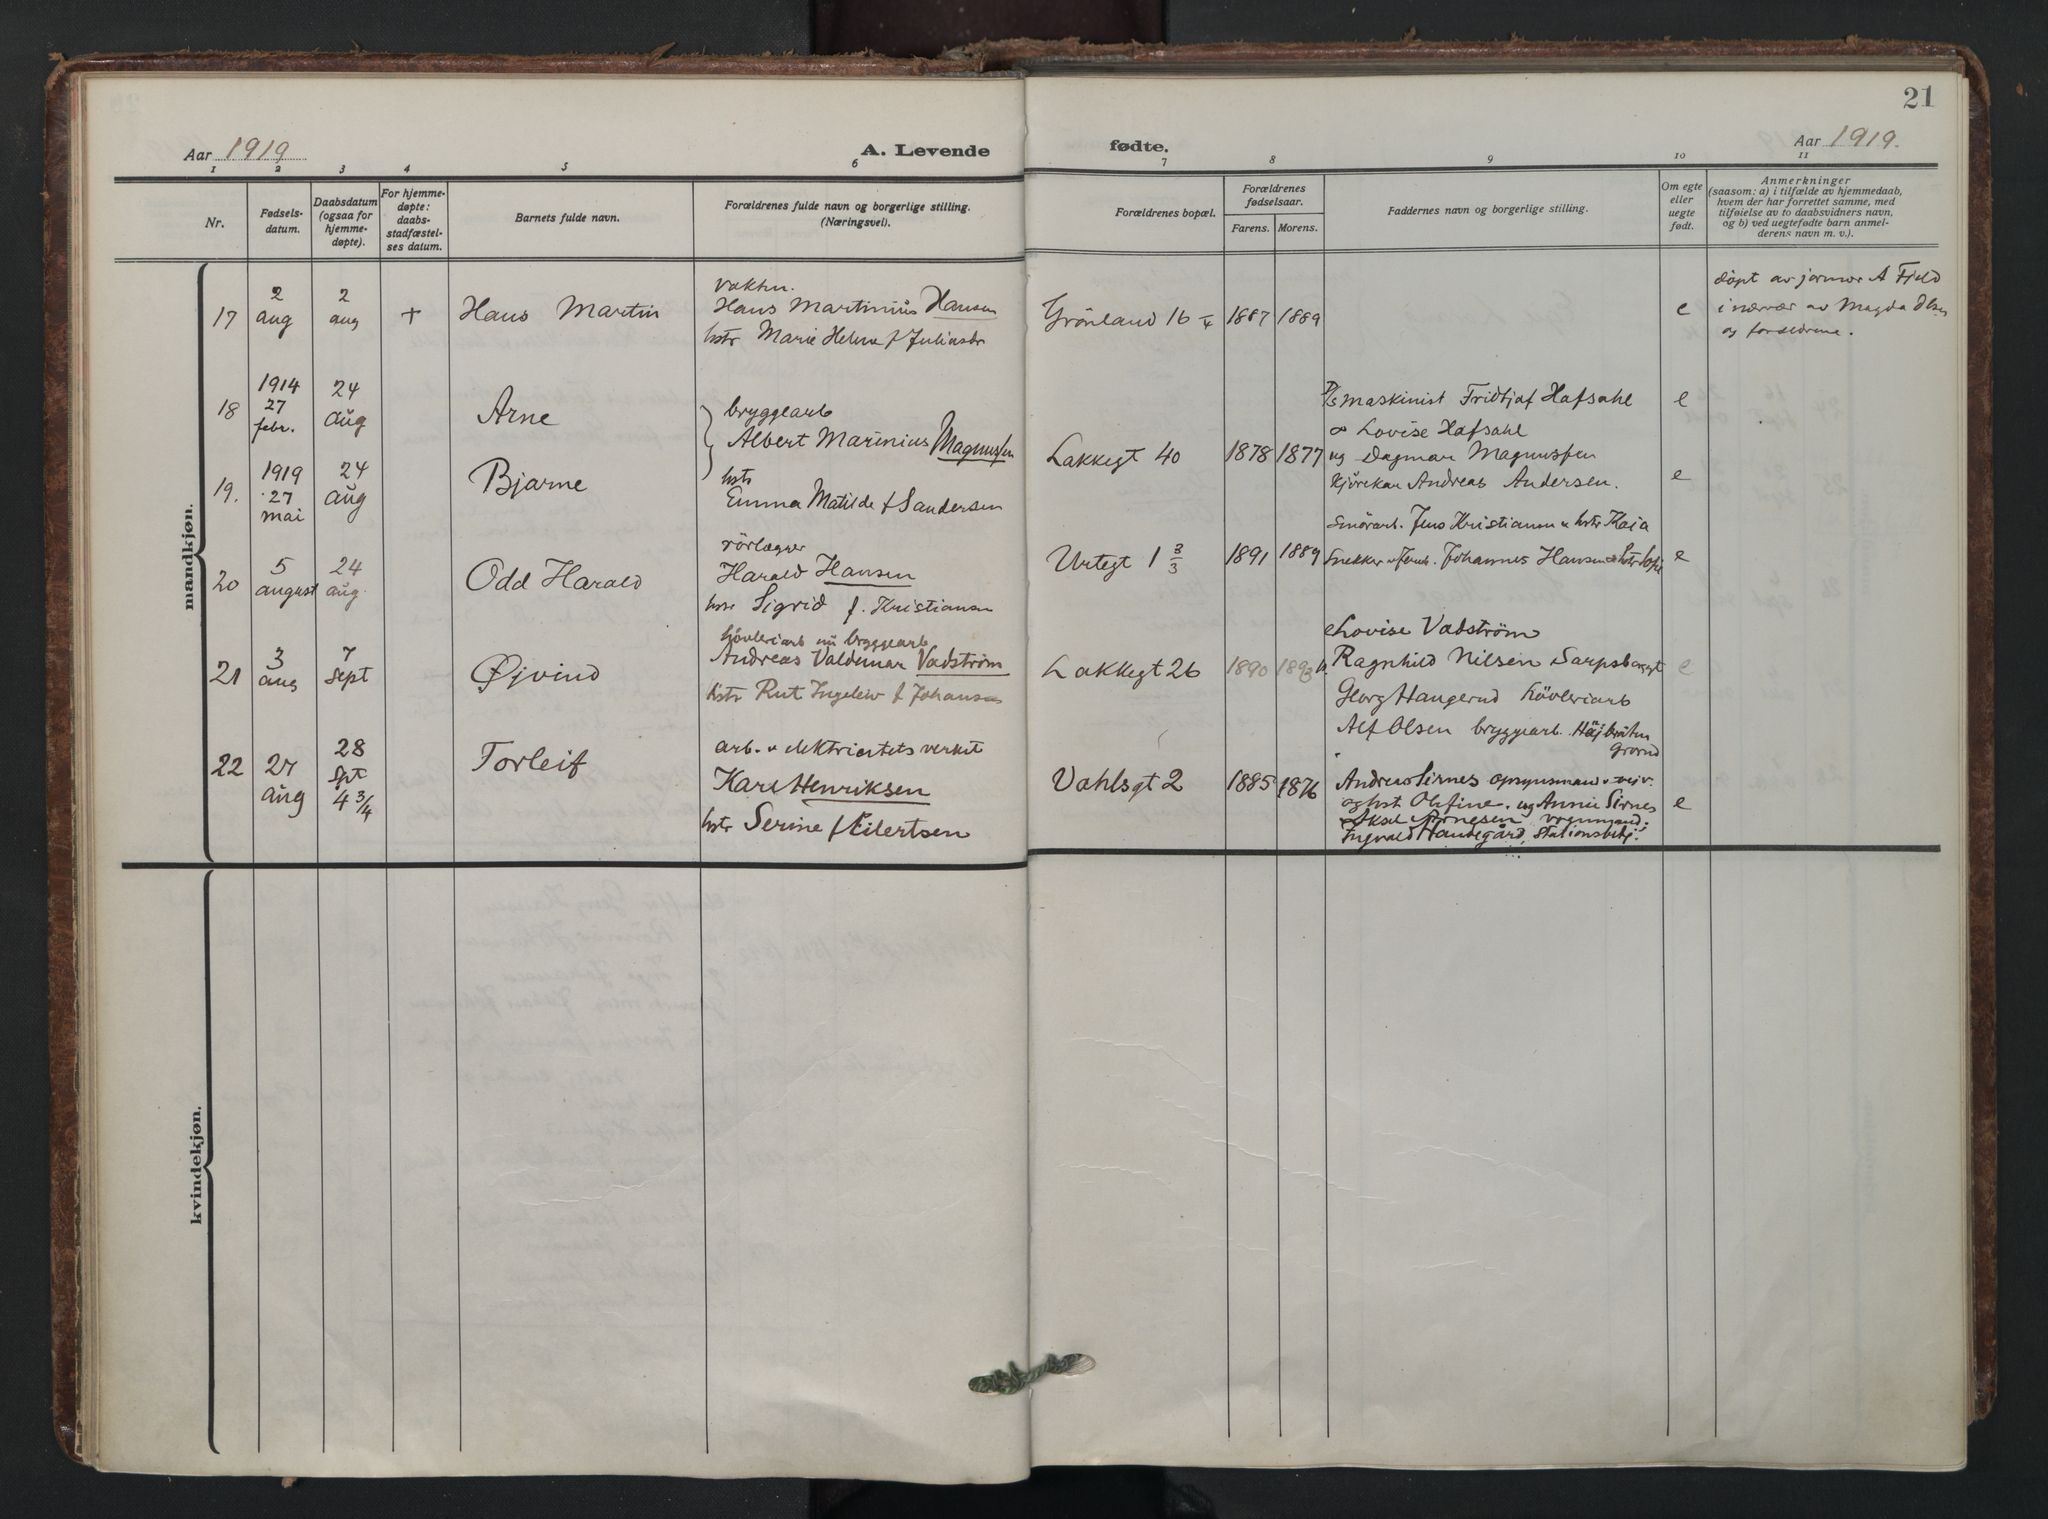 21
Aar 1919
A. Levende
fødte.
Aar 1919.
1 2 3 4 5 6 7 8 9 10 11
Nr.
Fødsels-
datum.
Daabsdatum
(ogsaa for
hjemme-
døpte).
For hjemme-
døpte:
daabs-
stadfæstel-
ses datum.
Barnets fulde navn.
Forældrenes fulde navn og borgerlige stilling.
(Næringsvei).
Forældrenes bopæl.
Forældrenes
fødselsaar.
Farens. Morens.
Faddernes navn og borgerlige stilling.
Om egte
eller
uegte
født.
Anmerkninger
(saasom: a) i tilfælde av hjemmedaab,
hvem der har forrettet samme, med
tilføielse av to daabsvidners navn,
og b) ved uegtefødte barn anmel-
derens navn m. v.).
mandkjøn.
17
2
aug
2
aug
+
Hans Martin
vaktm.
Hans Martinius Hansen
hstr Marie Helene f Juliusdr
Grönland 16
1887 1889
e
døpt av jormor A Fjeld
i nærvær av Magda Olsen
og forældrene.
18
1914
27
febr.
24
aug
Arne
bryggearb
Albert Marinius Magnussen
hstr
Emma Matilde f Sandersen
Lakkegt 40
1878 1877
D/s maskinist Fridtjof Hafsahl
Lovise Hafsahl
ug Dagmar Magnussen
Kjørekar Andreas Andersen.
e
19.
1919
27
mai
24
aug
Bjarne
e
20
5
august
24
aug.
Odd Harald
rörlægger
Harald Hansen
hstr Sigrid f. Kristiansen
Urtegt 1 3/3
1891 1889
Smörarb. Jens Kristiansen u hstr Kaja
Snekker Johannes Hansen hstr Sofie
e
21
3
aug
7
sept
Øjvind
hövleriarb nu bryggearb
Andreas Valdemar Vadström
hstr Rut Ingeleiv f Johansen
Lakkegt 26
1890 1893
Lovise Vadström
Ragnhild Nilsen Sarpsborggt
Georg Haugerud hövleriarb
Alf Olsen bryggearb. Höjbråten
Grorud
e
22
27
aug
28
spt
4 3/4
Torleif
arb. v elektricitets verket
Karl Henriksen
hstr Serine f Eilertsen
Vahlsgt 2
1885 1876
Andreas Sirnes opsynsmand v veiv.
og hst Olefine. ug Annie Sirnes
Aksel vognmand;
Ingvald Haudegård, Stationsbetj.
e
kvindekjøn.